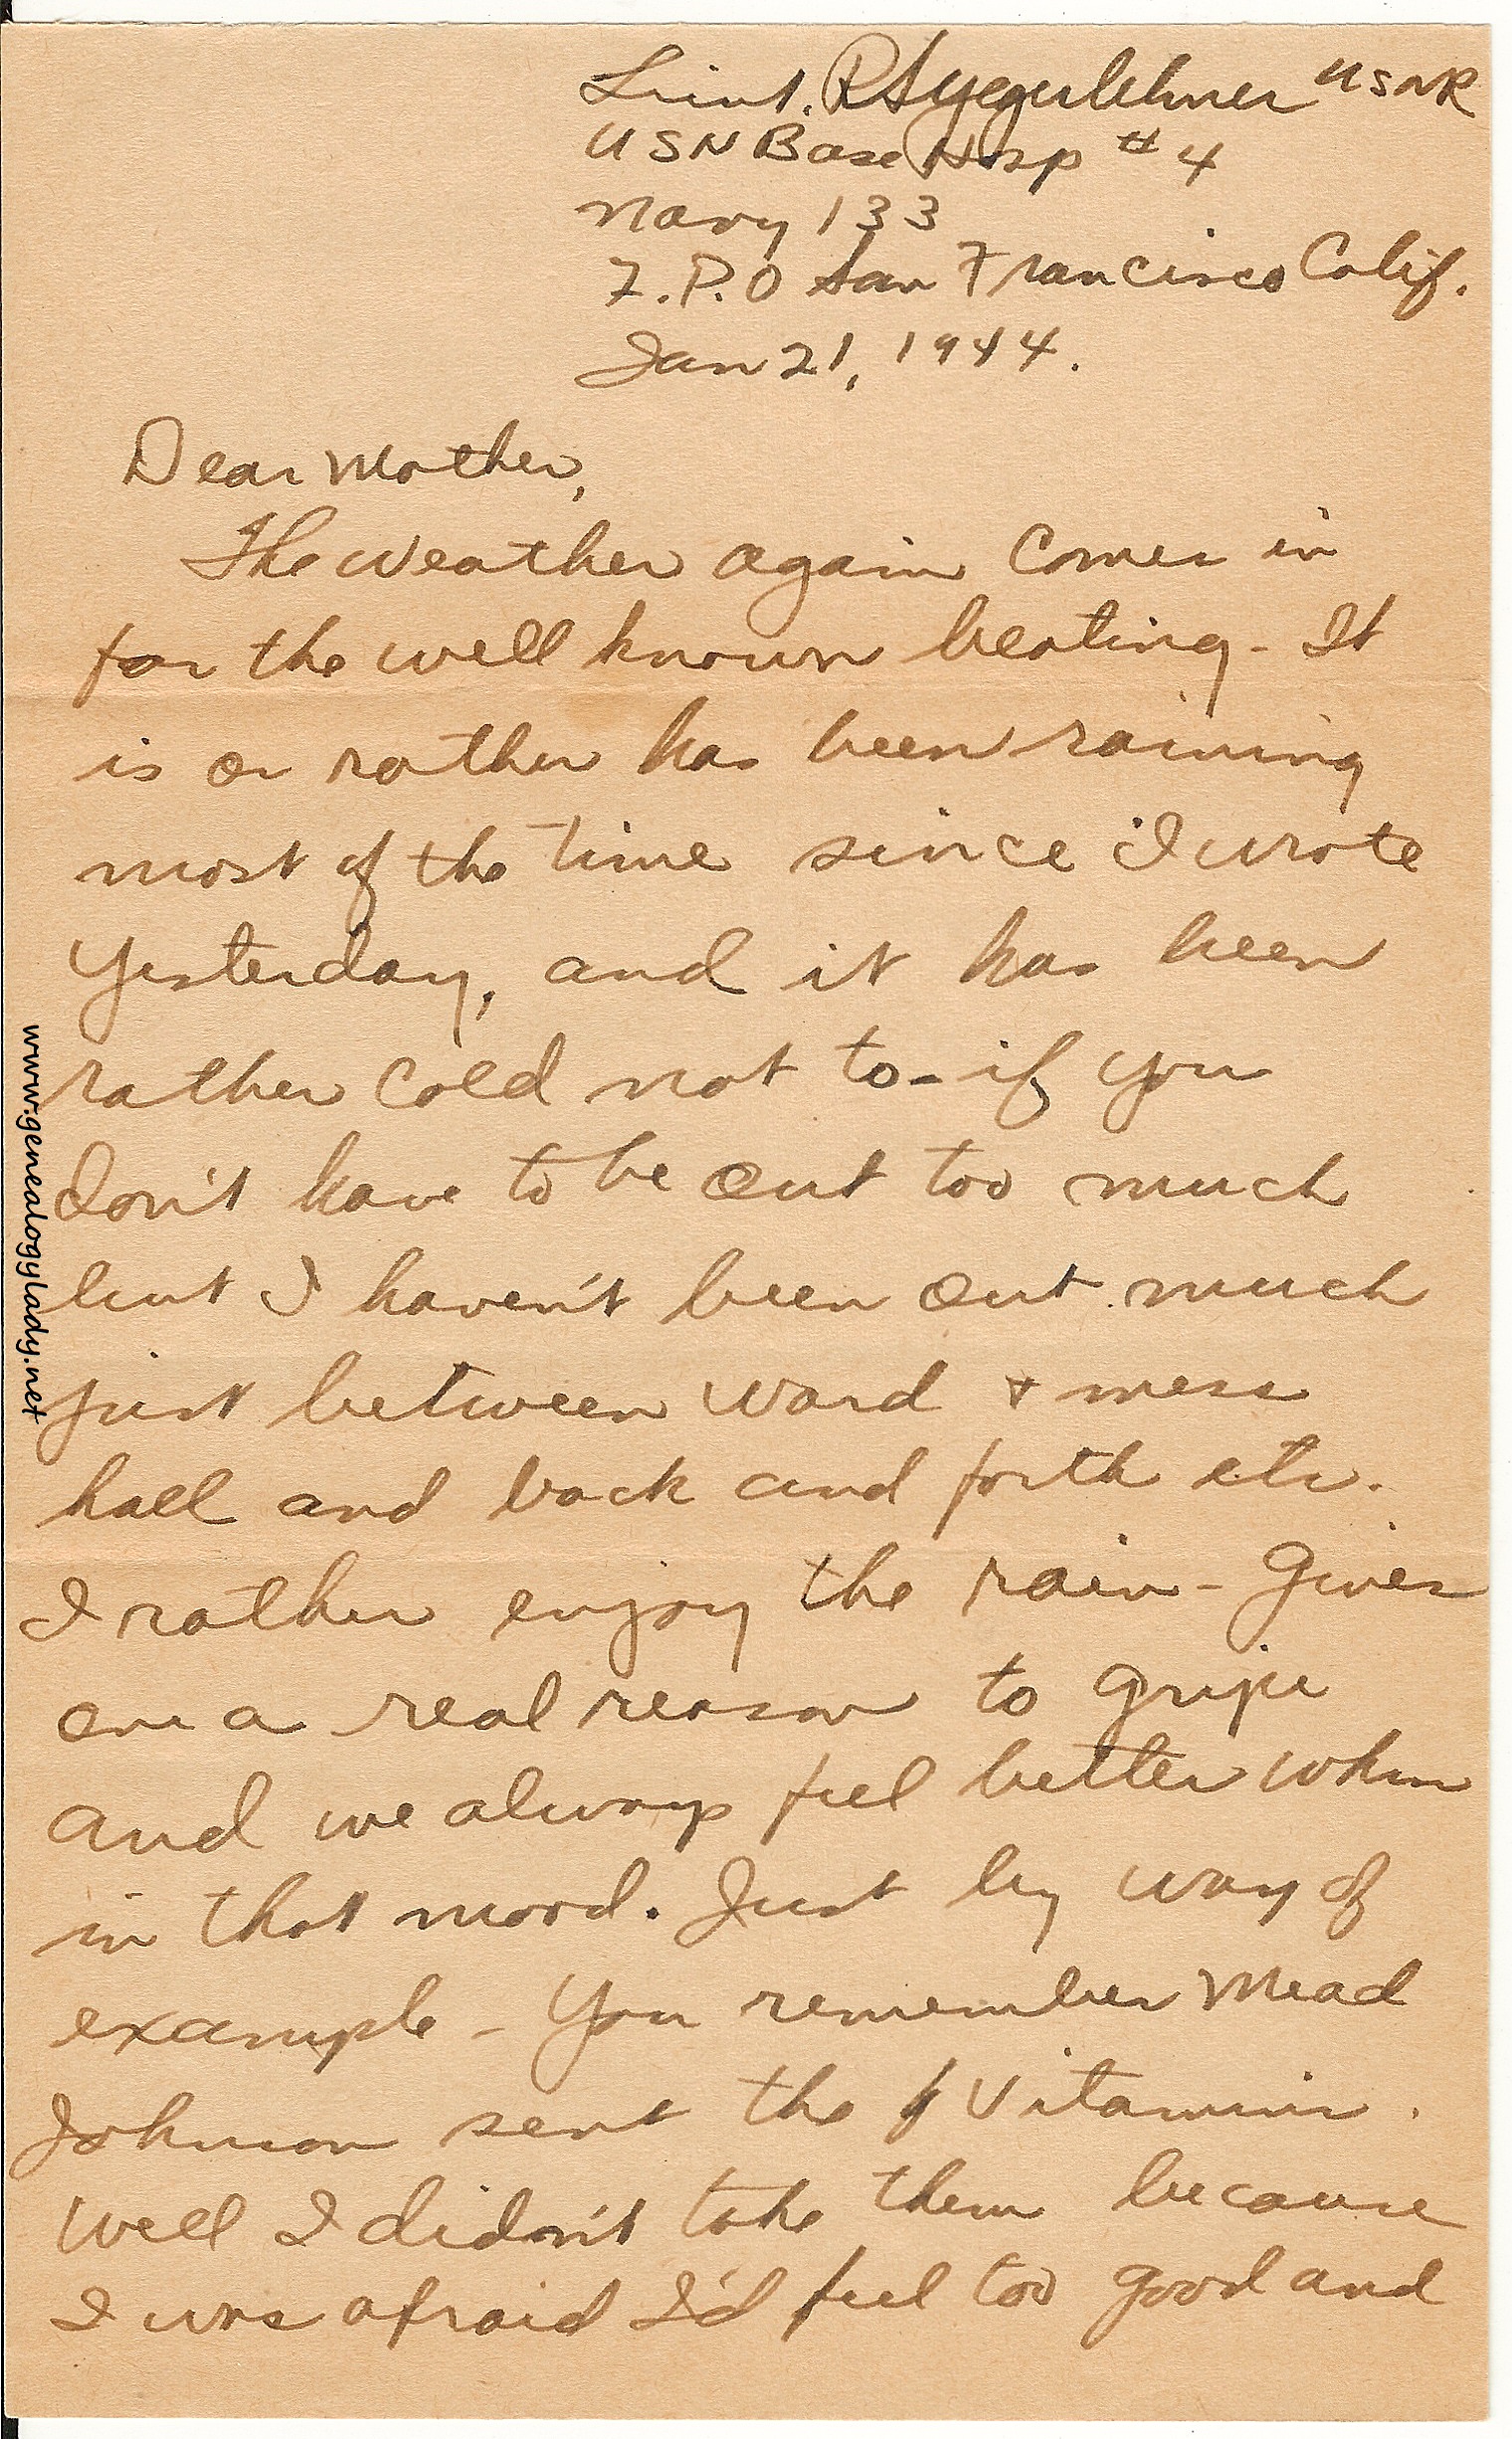 Lieut. R S Yegerlehner USNR
USN Base Hosp # 4
Navy 133
F.P.O San Francisco Calif.
Jan 21, 1944.
Dear Mother,
The weather again comes in
for the well known beating - It
is or rather has been raining
most of the time since I wrote
yesterday, and it has been
rather cold not to - if you
don't have to be out too much
but I haven't been out much
just between ward + mess
hall and back and forth etc.
I rather enjoy the rain - Gives
one a real reason to gripe
and we always feel better when
in that mood. Just by way of
example - You remember Mead
Johnson sent the Vitamins.
Well I didn't take them because
I was afraid I'd feel too good and
www.genealogylady.net